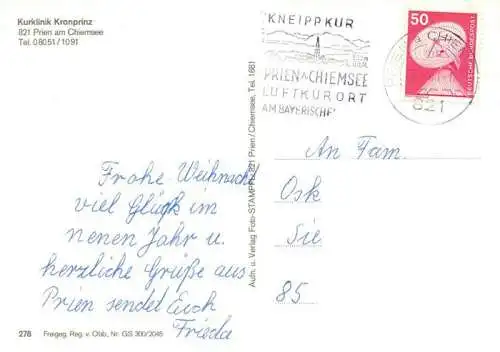 Kurklinik Kronprinz
821 Prien am Chiemsee
Tel. 08051/1091
KNEIPPKUR
PRIEN A. CHIEMSEE
LUFTKURORT
AM BAYERISCHE
821
50
DEUTSCHE BUNDESPOST
Frohe Weihnacht
viel Glück im
neuen Jahr u.
herzliche Grüße aus
Prien sendet Euch
Frieda
An Fam.
Osk
Sie
85
Aufn. u. Verlag Foto-STAMPFL, 821 Prien/Chiemsee, Tel. 1661
278 Freigeg. Reg. v. Obb, Nr. GS 300/2045